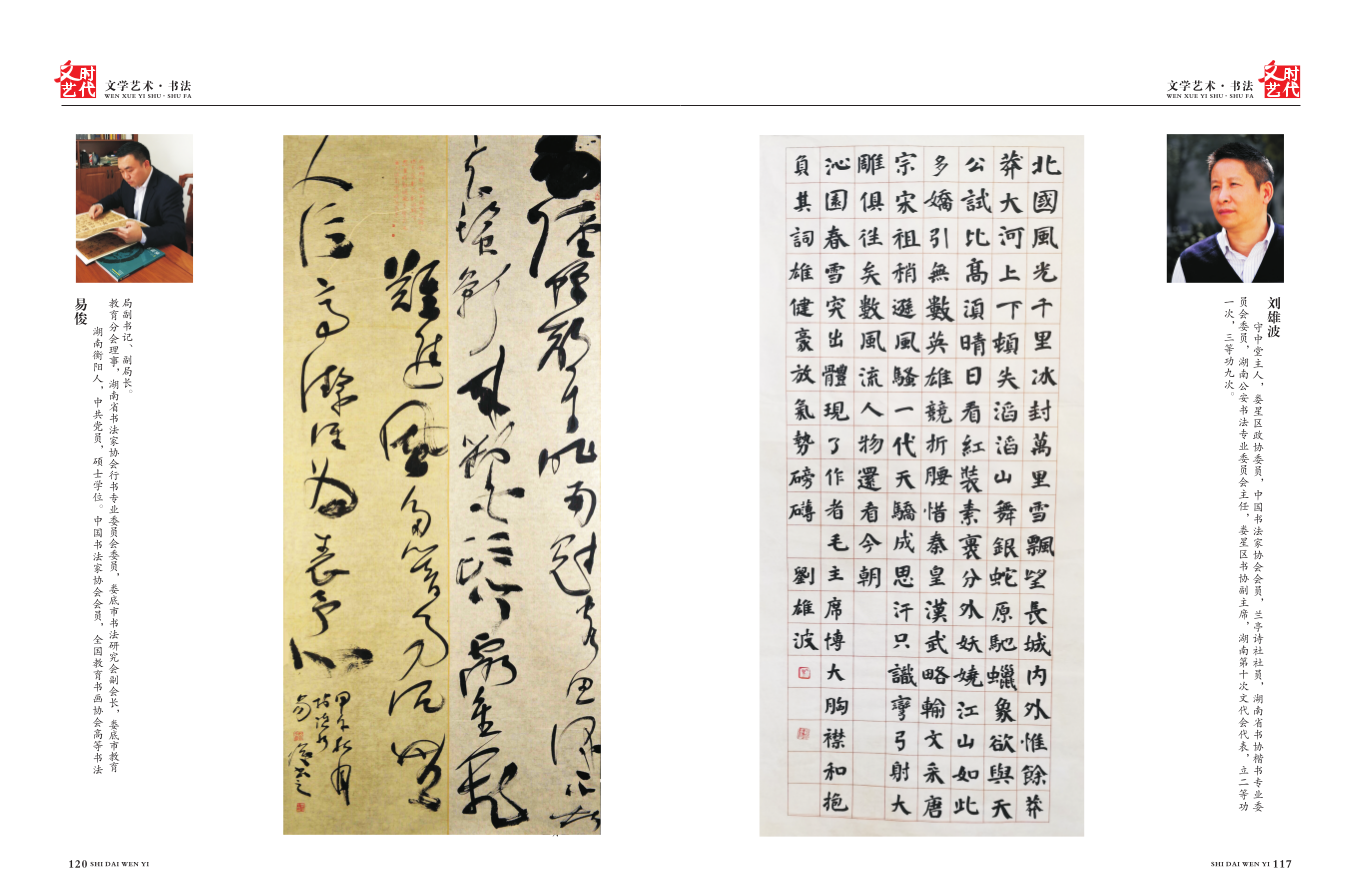 时代文艺
文学艺术·书法
WEN XUE YI SHU · SHU FA
易俊
湖南衡阳人，中共党员，硕士学位。中国书法家协会会员，全国教育书画协会高等书法
教育分会理事，湖南省书法家协会行书专业委员会委员，娄底市书法研究会副会长，娄底市教育
局副书记、副局长。
西陸蟬聲唱南冠客思深不堪
玄鬢影来對白头吟露重飛
難進風多響易沉無
人信高潔谁为表予心
甲午秋月
120 SHI DAI WEN YI
文学艺术·书法
WEN XUE YI SHU · SHU FA
时代文艺
北國風光千里冰封萬里雪飄望長城内外惟餘莽
莽大河上下頓失滔滔山舞銀蛇原馳蠟象欲與天
公試比高須晴日看紅裝素裹分外妖嬈江山如此
多嬌引無數英雄競折腰惜秦皇漢武略輸文采唐
宗宋祖稍遜風騷一代天驕成思汗只識彎弓射大
雕俱往矣數風流人物還看今朝
沁園春雪究出體現了作者毛主席博大胸襟和抱
負其詞雄健豪放氣勢磅礡 劉雄波
刘雄波
守中堂主人，娄星区政协委员，中国书法家协会会员，兰亭诗社社员，湖南省书协楷书专业委
员会委员，湖南公安书法专业委员会主任，娄星区书协副主席，湖南第十次文代会代表，立二等功
一次，三等功九次。
SHI DAI WEN YI 117